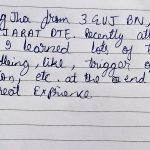 g Jha from 3 GUJ BN,
JARAT DTE. Recently att
I learned lots of t
dling, like, trigger o
ion, etc. at the end
reat Exprience